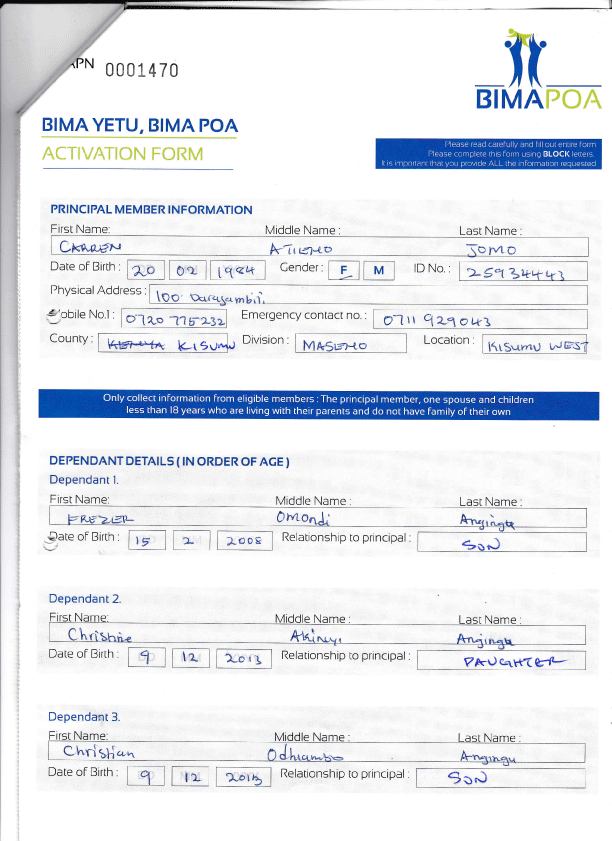 APN 0001470
BIMAPOA
BIMA YETU, BIMA POA
ACTIVATION FORM
Please read carefully and fill out entire form
Please complete this form using BLOCK letters.
It is important that you provide ALL the information requested
PRINCIPAL MEMBER INFORMATION
First Name: Middle Name : Last Name :
CARREN ATIENO JOMO
Date of Birth : 20 02 1984 Gender : F M ID No. : 25934443
Physical Address : 100 Darajambili
Mobile No.1 : 0720 775232 Emergency contact no. : 0711 929043
County : KENYA KISUMU Division : MASENO Location : KISUMU WEST
Only collect information from eligible members : The principal member, one spouse and children
less than 18 years who are living with their parents and do not have family of their own
DEPENDANT DETAILS ( IN ORDER OF AGE )
Dependant 1.
First Name: Middle Name : Last Name :
FREZIER Omondi Anginga
Date of Birth : 15 2 2008 Relationship to principal : SON
Dependant 2.
First Name: Middle Name : Last Name :
Christine Akinyi Anginga
Date of Birth : 9 12 2013 Relationship to principal : DAUGHTER
Dependant 3.
First Name: Middle Name : Last Name :
Christian Odhiambo Anginga
Date of Birth : 9 12 2013 Relationship to principal : SON